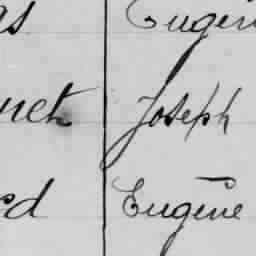 as Eugen
uet Joseph
rd Eugene